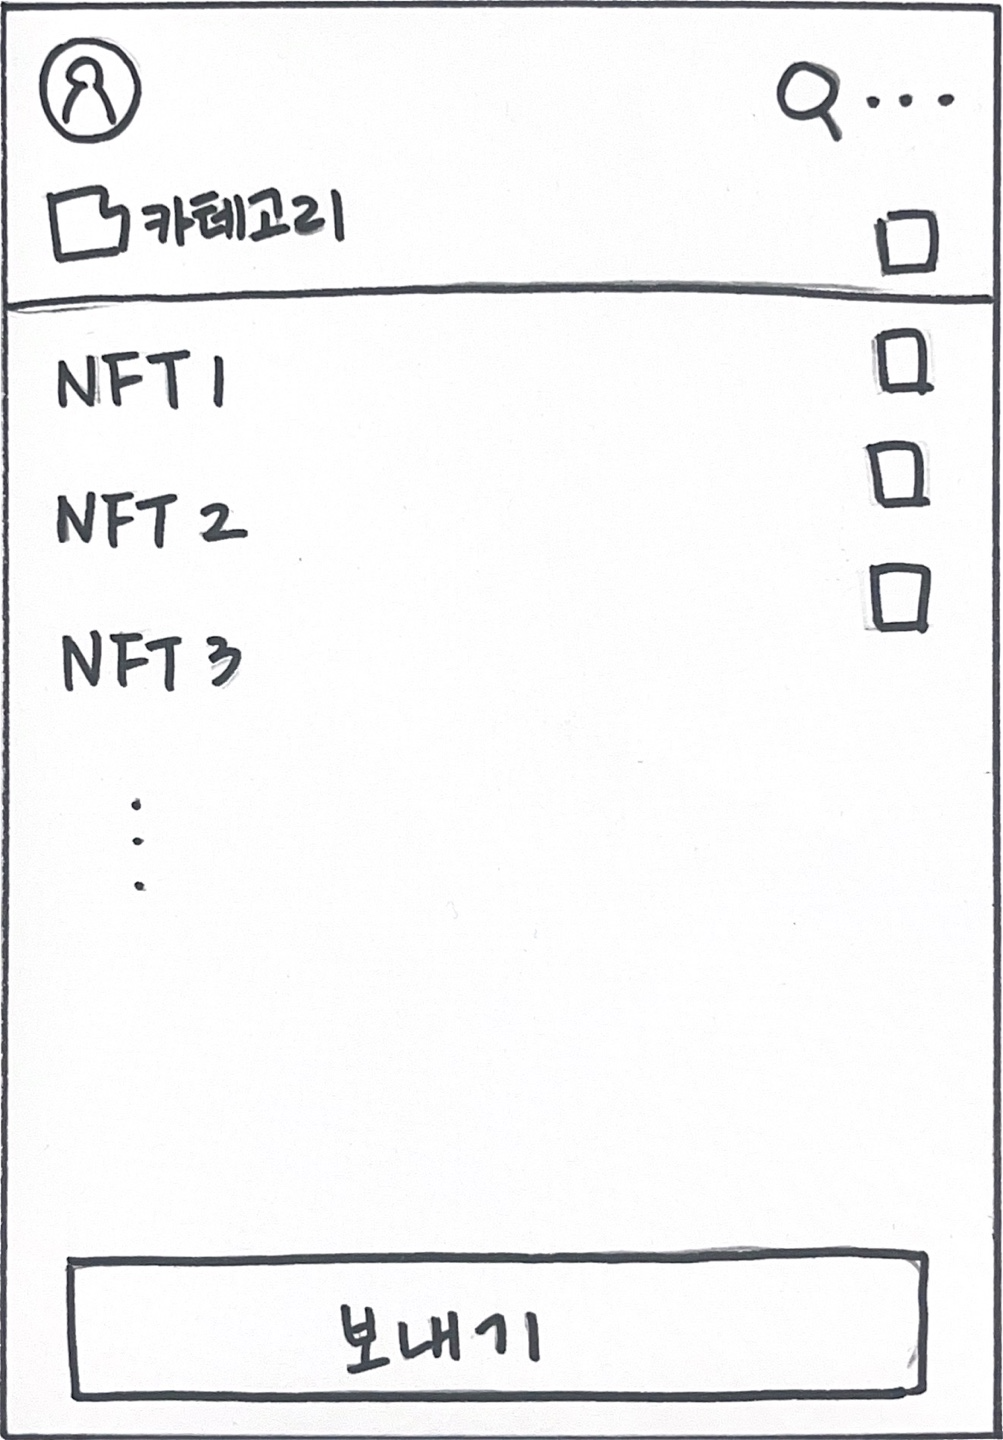 카테고리
NFT 1
NFT 2
NFT 3
보내기